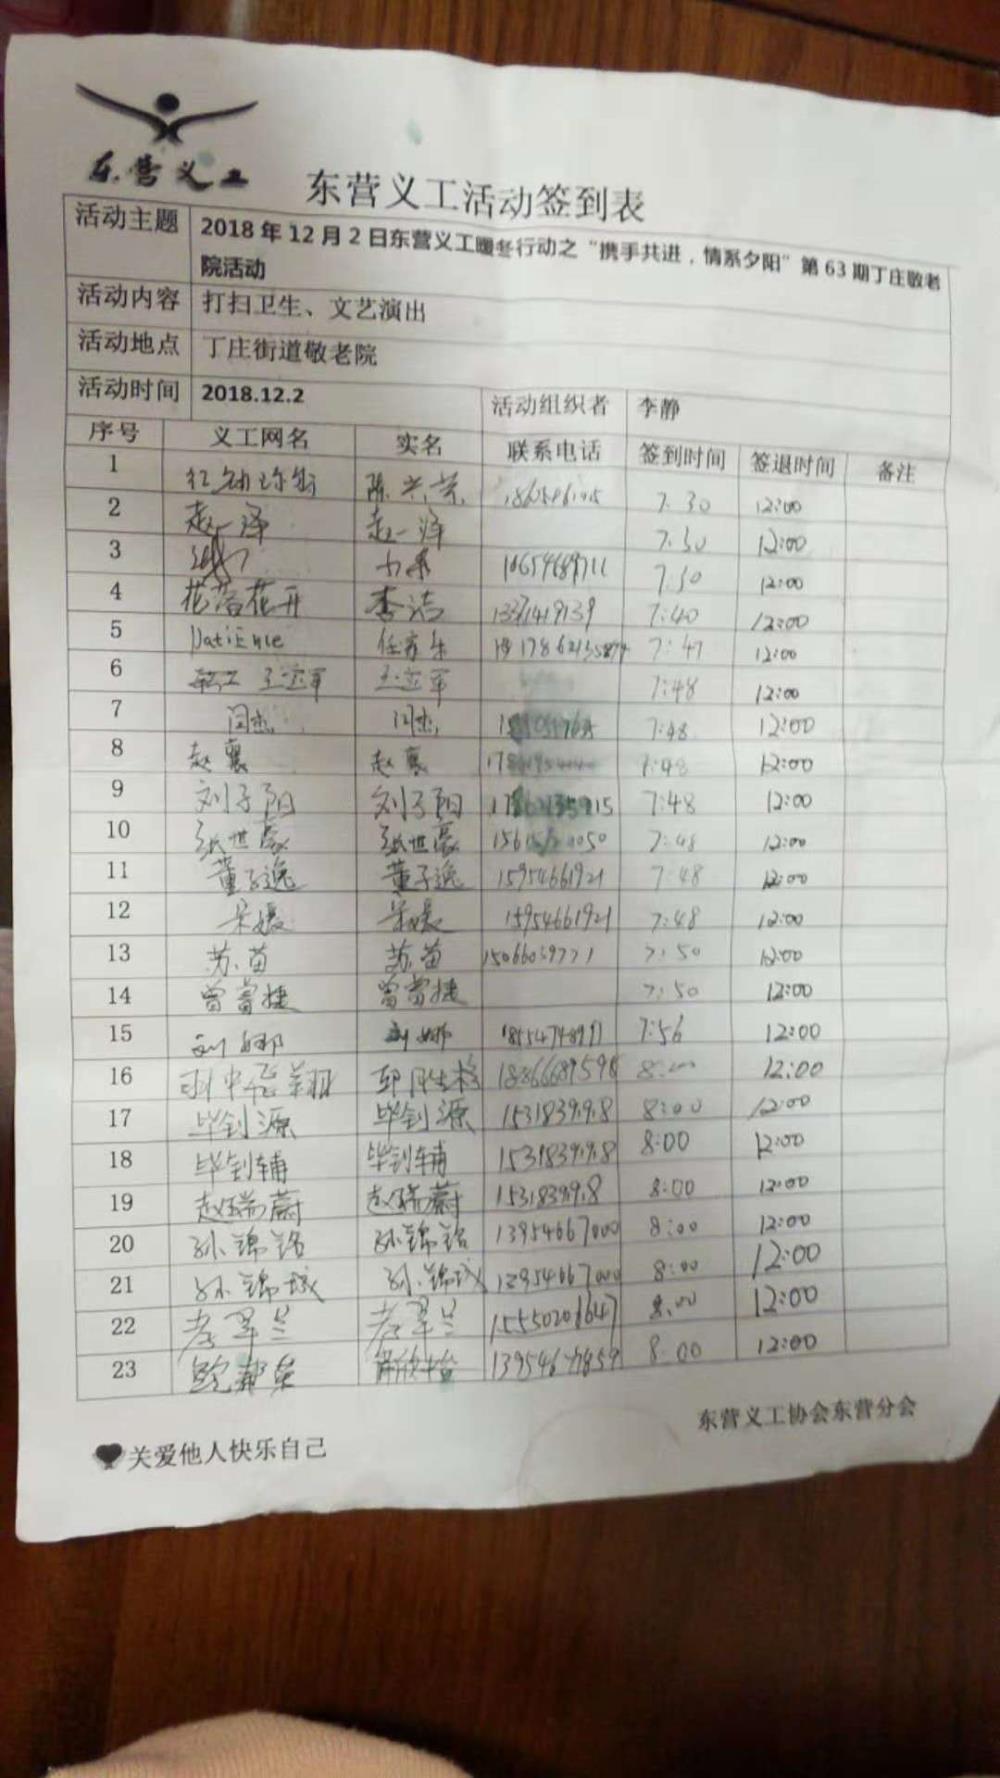 东营义工
东营义工活动签到表
活动主题 2018年12月2日东营义工暖冬行动之“携手共进，情系夕阳”第63期丁庄敬老
院活动
活动内容 打扫卫生、文艺演出
活动地点 丁庄街道敬老院
活动时间 2018.12.2 活动组织者 李静
序号 义工网名 实名 联系电话 签到时间 签退时间 备注
1 7:30 12:00
2 赵一泽 赵一泽 7:30 12:00
3 7:30 12:00
4 花落花开 李洁 13371419139 7:40 12:00
5 7:47 12:00
6 王立军 王立军 7:48 12:00
7 闫杰 闫杰 7:48 12:00
8 赵襄 赵襄 7:48 12:00
9 刘子阳 刘子阳 7:48 12:00
10 张世豪 张世豪 7:48 12:00
11 董子逸 董子逸 15954661921 7:48 12:00
12 15954661921 7:48 12:00
13 苏苗 苏苗 15066039771 7:50 12:00
14 曾睿捷 曾睿捷 7:50 12:00
15 刘娜 刘娜 7:56 12:00
16 雨中飞翔 8:00 12:00
17 毕钊源 毕钊源 8:00 12:00
18 毕钊辅 毕钊辅 8:00 12:00
19 赵瑞蔚 赵瑞蔚 8:00 12:00
20 孙锦铭 孙锦铭 13954667000 8:00 12:00
21 孙锦城 孙锦城 13954667000 8:00 12:00
22 李翠兰 李翠兰 15550206647 8:00 12:00
23 8:00 12:00
东营义工协会东营分会
关爱他人快乐自己